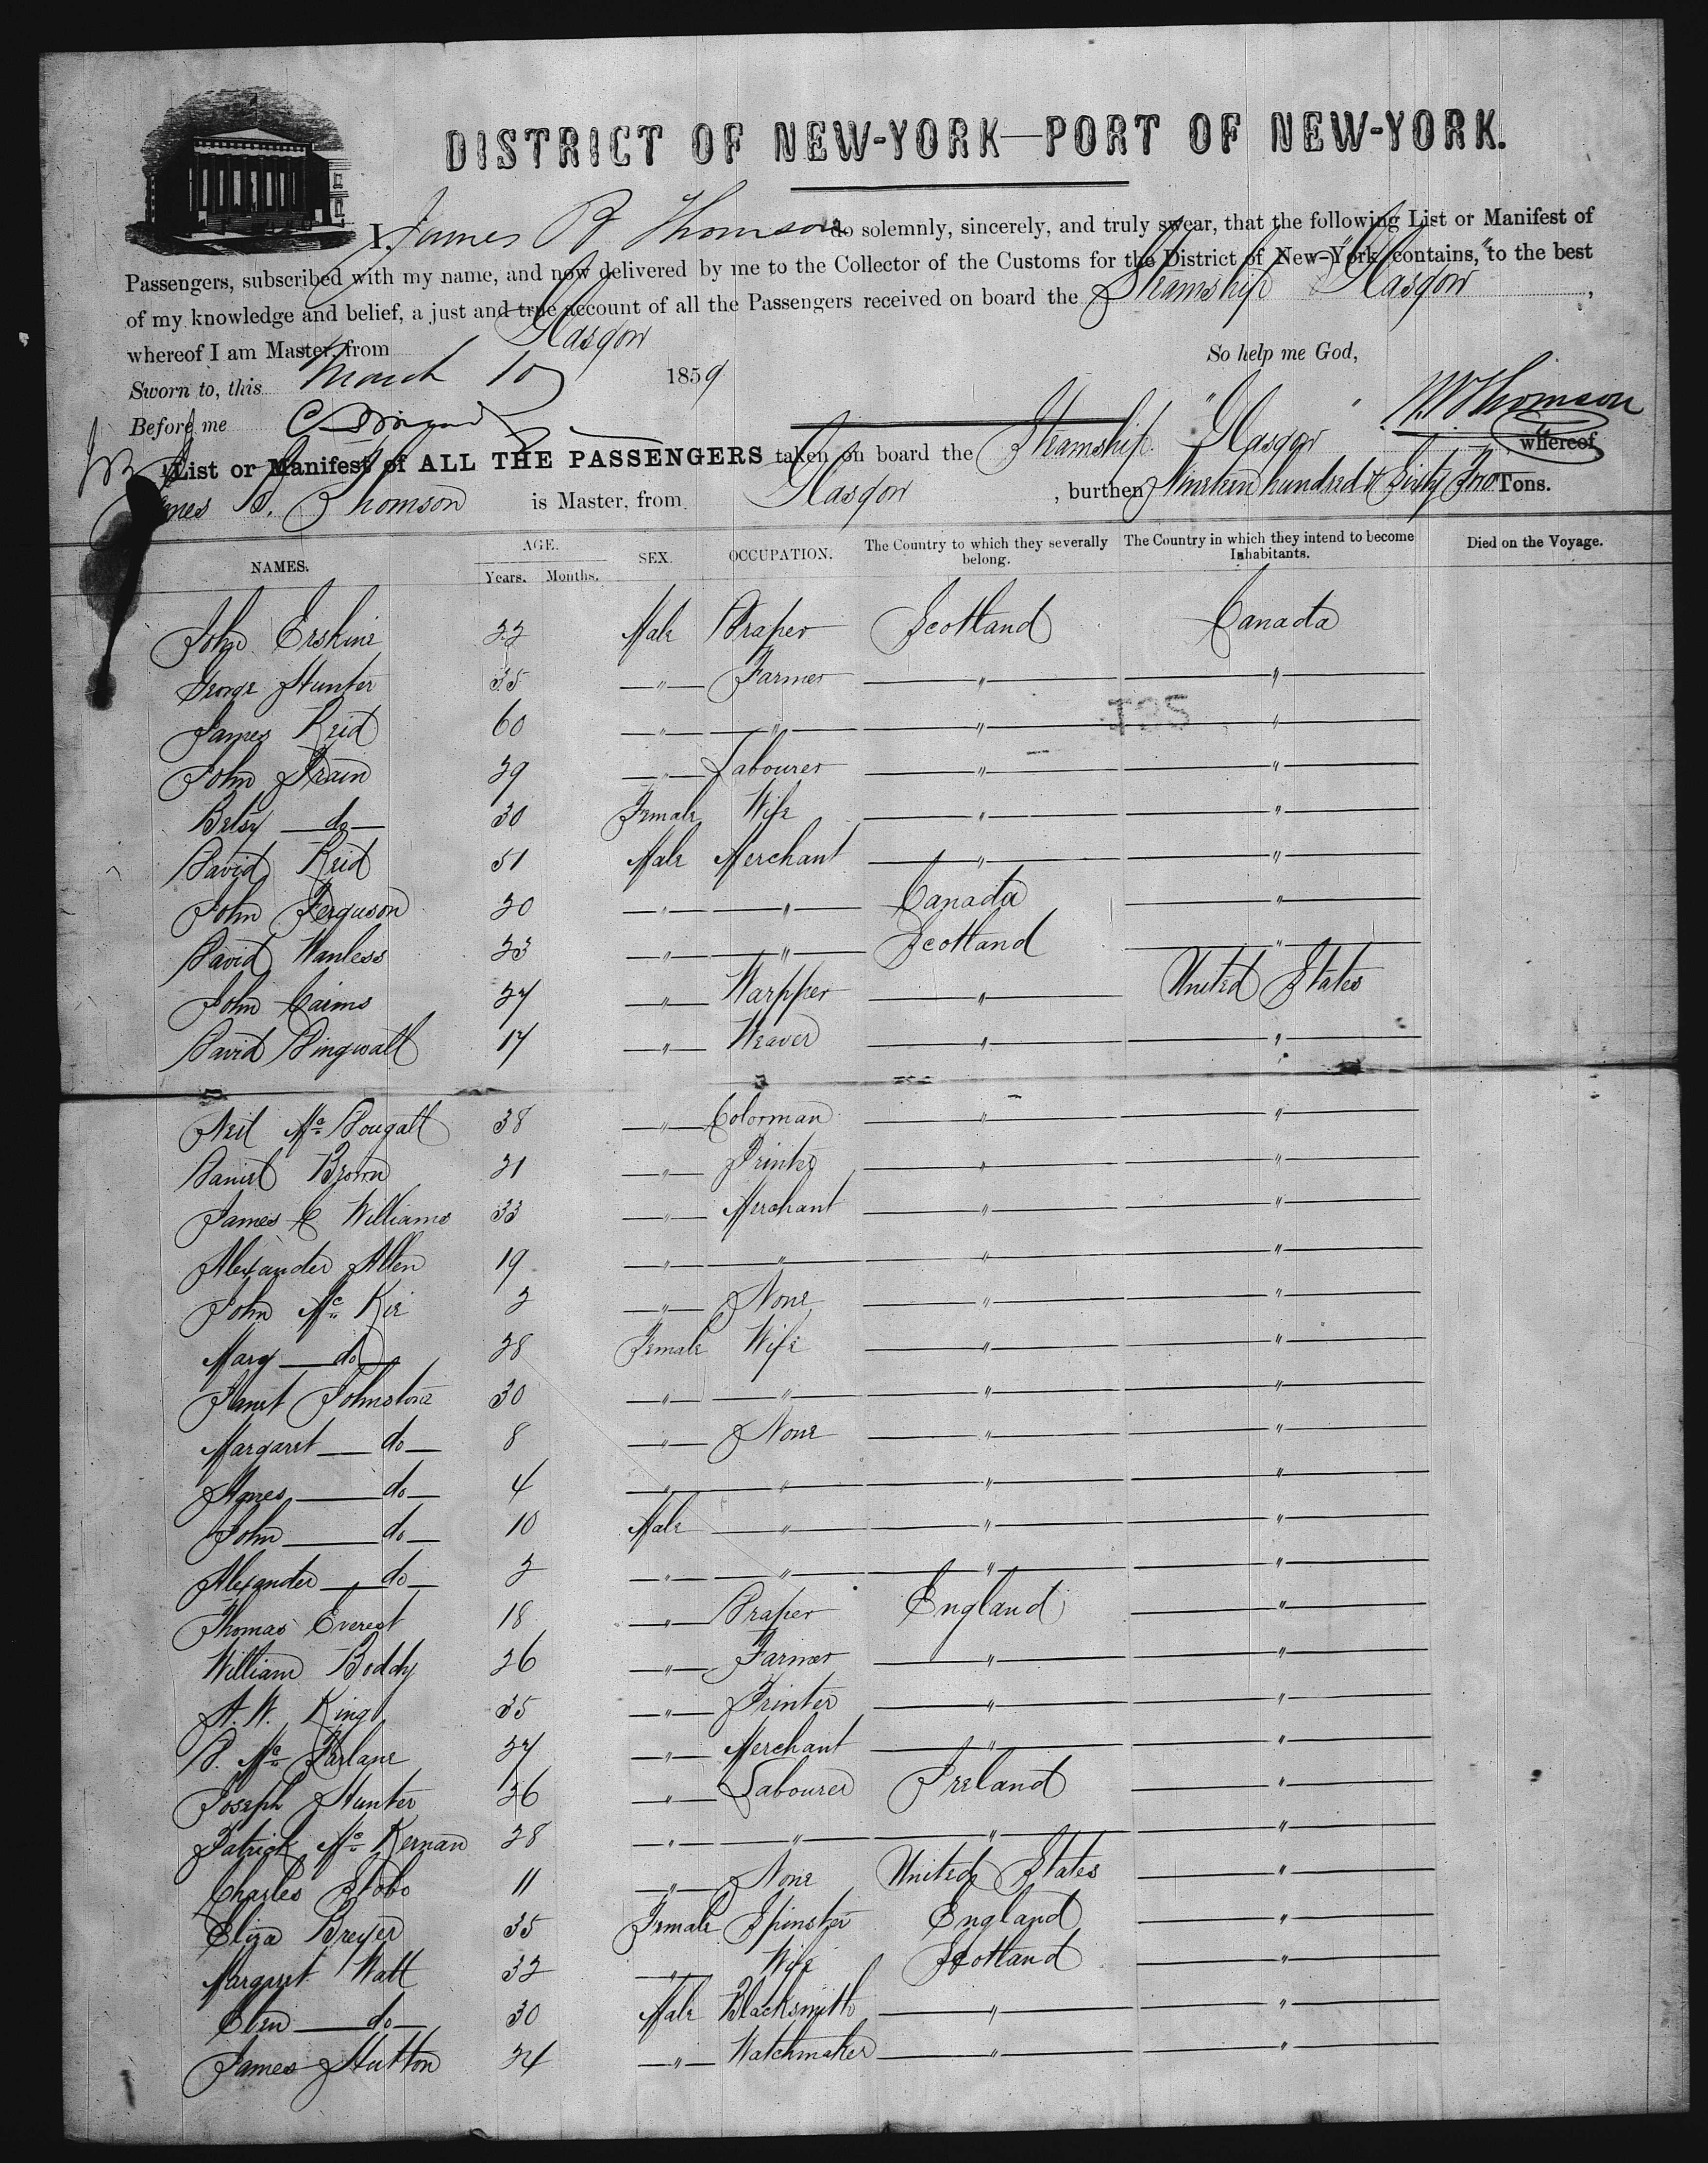 DISTRICT OF NEW-YORK—PORT OF NEW-YORK.
I, James R Thomson do solemnly, sincerely, and truly swear, that the following List or Manifest of
Passengers, subscribed with my name, and now delivered by me to the Collector of the Customs for the District of New-York, contains, to the best
of my knowledge and belief, a just and true account of all the Passengers received on board the Steamship "Glasgow",
whereof I am Master, from Glasgow
So help me God,
Sworn to, this March 10 1859
Thomson
Before me
List or Manifest of ALL THE PASSENGERS taken on board the Steamship "Glasgow" whereof
James R. Thomson is Master, from Glasgow, burthen Nineteen hundred & Sixty Two Tons.
NAMES. AGE. Years. Months. SEX. OCCUPATION. The Country to which they severally belong. The Country in which they intend to become Inhabitants. Died on the Voyage.
John Erskine 22 Male Draper Scotland Canada
George Hunter 35 " Farmer " "
James Reid 60 " " " "
John Strain 29 " Labourer " "
Betsy do 30 Female Wife " "
David Reid 51 Male Merchant " "
John Ferguson 20 " " Canada "
David Wanless 23 " " Scotland "
John Cairns 27 " Warpper " United States
David Dingwall 17 " Weaver " "
Neil Mc Dougall 38 " Colorman " "
Daniel Brown 21 " Printer " "
James C Williams 33 " Merchant " "
Alexander Allen 19 " " " "
John Mc Kie 2 " None " "
Mary do 28 Female Wife " "
Janet Johnstone 30 " " " "
Margaret do 8 " None " "
Agnes do 4 " " " "
John do 10 Male " " "
Alexander do 2 " " " "
Thomas Everest 18 " Draper England "
William Boddy 26 " Farmer " "
A. W. King 35 " Printer " "
D. Mc Farlane 27 " Merchant " "
Joseph Hunter 26 " Labourer Ireland "
Patrick Mc Kernan 28 " " " "
Charles Stobo 11 " None United States "
Eliza Breyer 35 Female Spinster England "
Margaret Watt 32 " Wife Scotland "
Eben do 30 Male Blacksmith " "
James Hutton 24 " Watchmaker " "